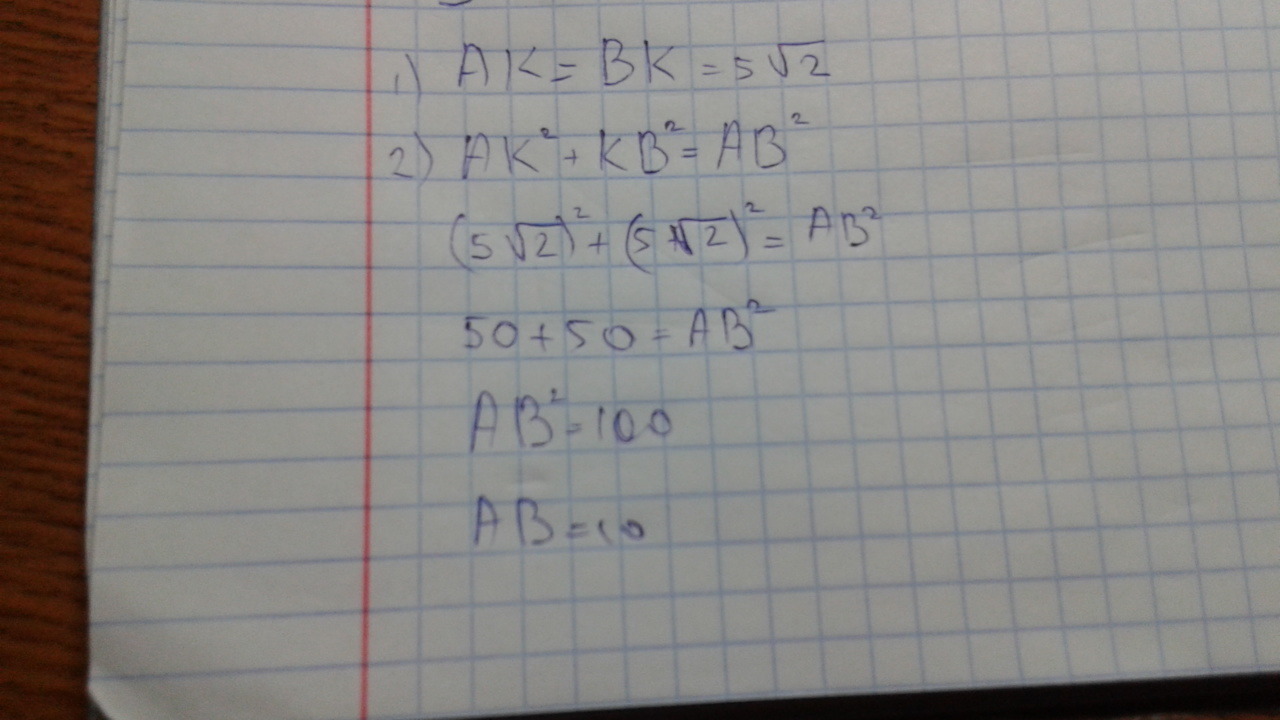 1) AK = BK = 5√2
2) AK² + KB² = AB²
(5√2)² + (5√2)² = AB²
50 + 50 = AB²
AB² = 100
AB = 10